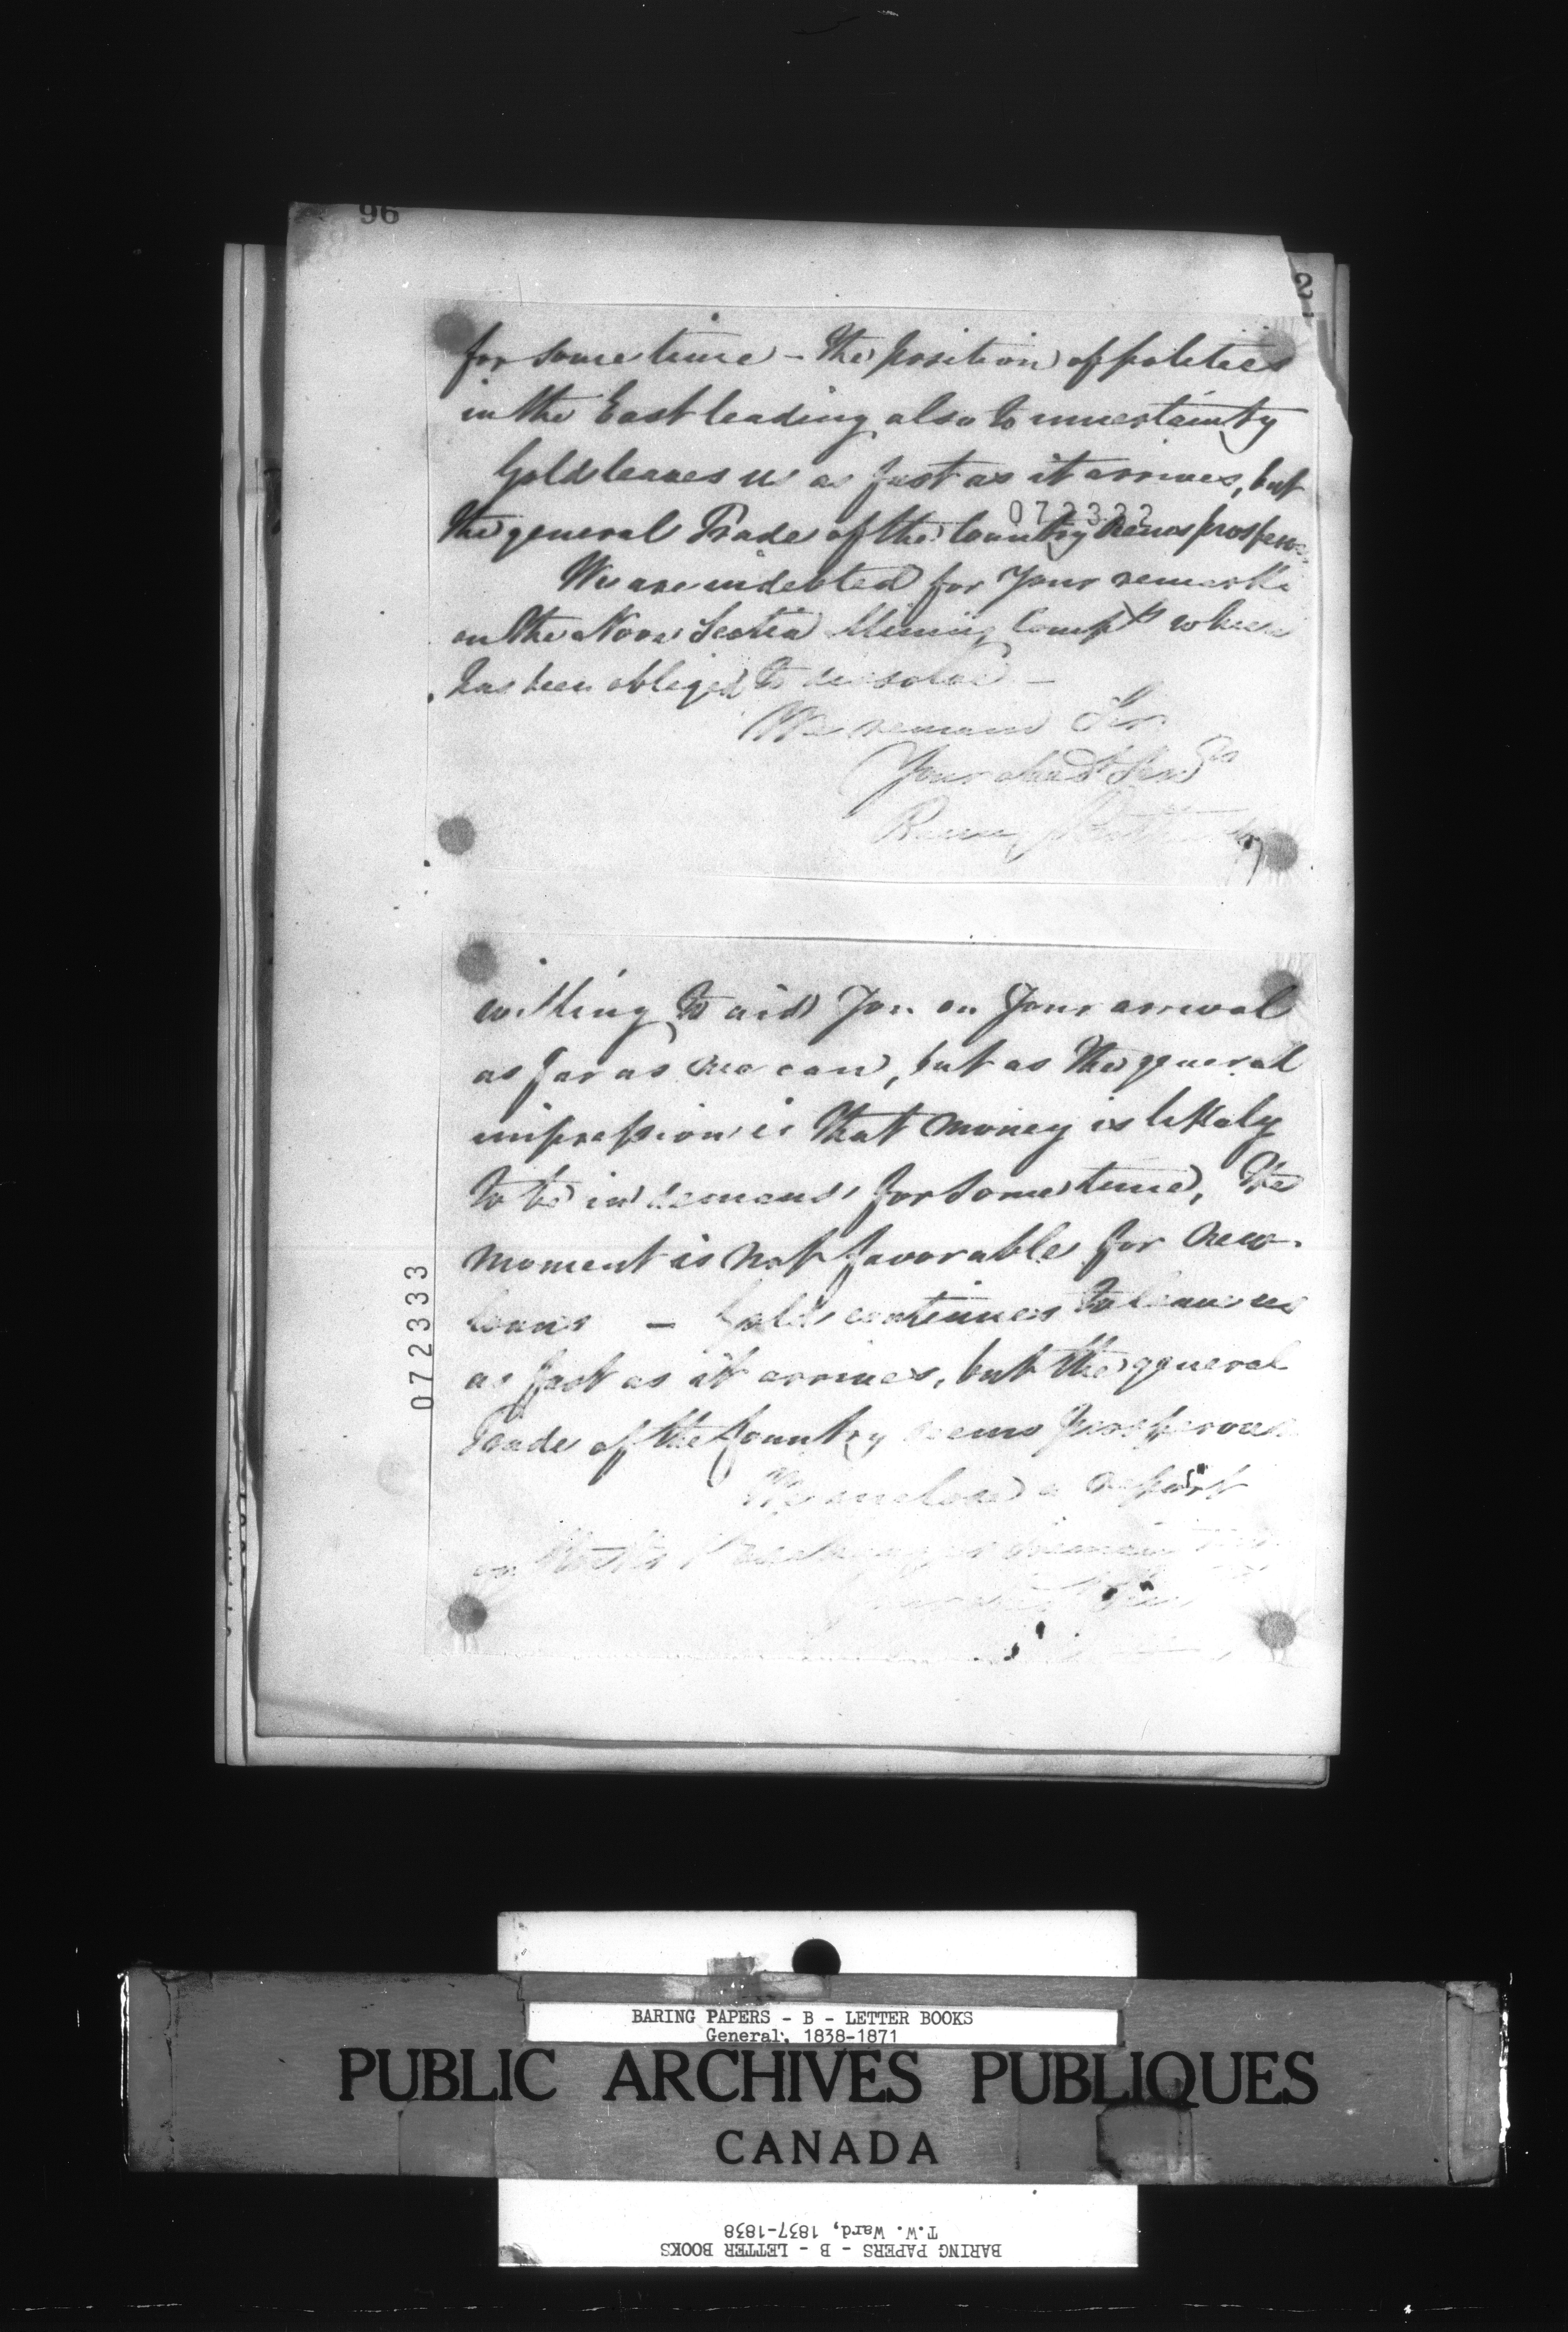 96
2
for some time – the position of politics
in the East leading also to uncertainty
Gold leaves us as fast as it arrives, but
072332
the general Trade of the Country seems prosperous
We are indebted for Your remarks
on the Nova Scotia Mining Comp^y which
has been obliged to dissolve –
We remain Sir
Your obed^t Serv^ts
Baring Brothers
willing to aid You on Your arrival
as far as we can, but as the general
impression is that money is likely
to be in demand for some time, the
moment is not favorable for new
loans – Gold continues to leave us
as fast as it arrives, but the general
Trade of the Country seems prosperous
072333
We enclose a report
on
BARING PAPERS - B - LETTER BOOKS
General, 1838-1871
PUBLIC ARCHIVES PUBLIQUES
CANADA
T.W. Ward, 1837-1838
BARING PAPERS - B - LETTER BOOKS